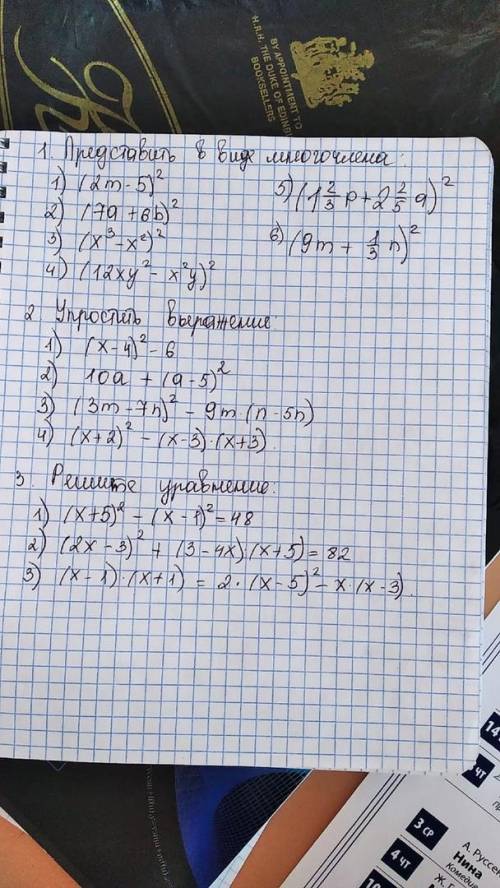 BY APPOINTMENT TO
H.R.H. THE DUKE OF EDINBU
BOOKSELLERS
1. Представить в виде многочлена:
1) (2m-5)²
2) (7a+6b)²
3) (x³-x²)²
4) (12xy²-x²y)²
5) (1 2/3 p + 2 2/5 q)²
6) (9m + 1/3 n)²
2 Упростить выражение
1) (x-4)²-6
2) 10a + (a-5)²
3) (3m-7n)² - 9m·(n-5n)
4) (x+2)² - (x-3)·(x+3)
3. Решите уравнение.
1) (x+5)² - (x-1)² = 48
2) (2x-3)² + (3-4x)·(x+5) = 82
3) (x-1)·(x+1) = 2·(x-5)² - x·(x-3).
14
ЧТ
3 СР
4 ЧТ
А. Руссе
Нина
комедия